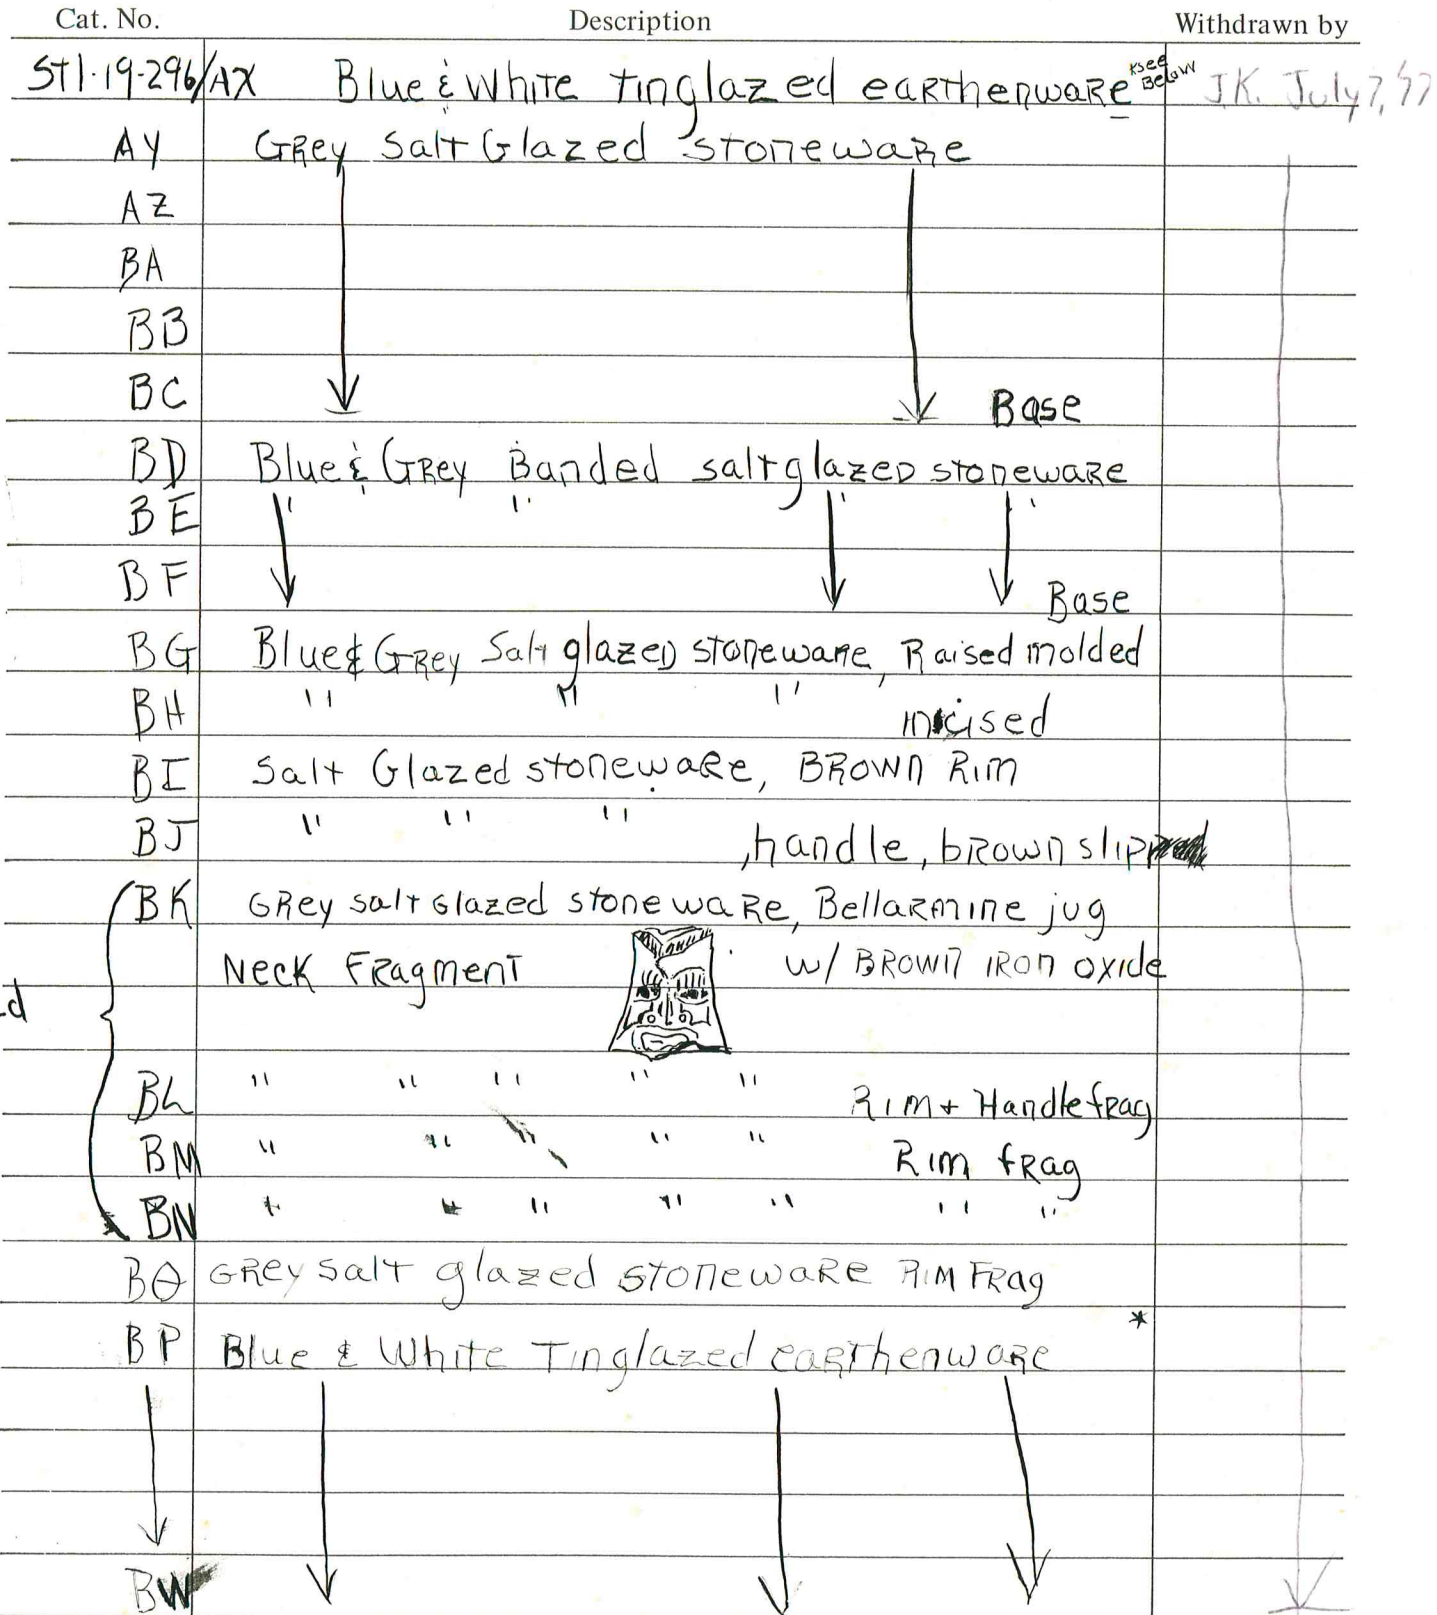 Cat. No. Description Withdrawn by
ST1-19-296/AX Blue & White tinglazed earthenware *see Below J.K. July 7, 77
AY Grey Salt Glazed stoneware
AZ
BA
BB
BC Base
BD Blue & Grey Banded saltglazed stoneware
BE " " " "
BF Base
BG Blue & Grey Salt glazed stoneware, Raised molded
BH " " " incised
BI Salt Glazed stoneware, Brown Rim
BJ " " " , handle, brown slip
BK Grey salt glazed stoneware, Bellarmine jug
Neck Fragment w/ Brown iron oxide
d
BL " " " " " Rim + Handle frag
BM " " " " " Rim frag
BN " " " " " " "
BO Grey Salt glazed stoneware Rim Frag
*
BP Blue & White Tinglazed earthenware
BW